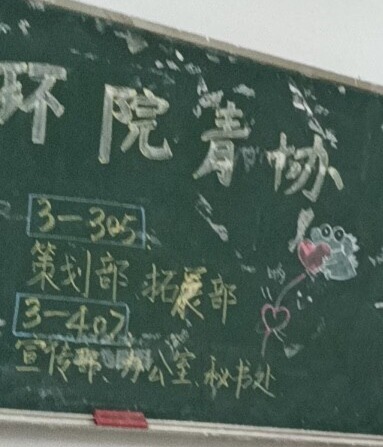 环院青协
3-305
策划部、拓展部
3-407
宣传部、办公室、秘书处